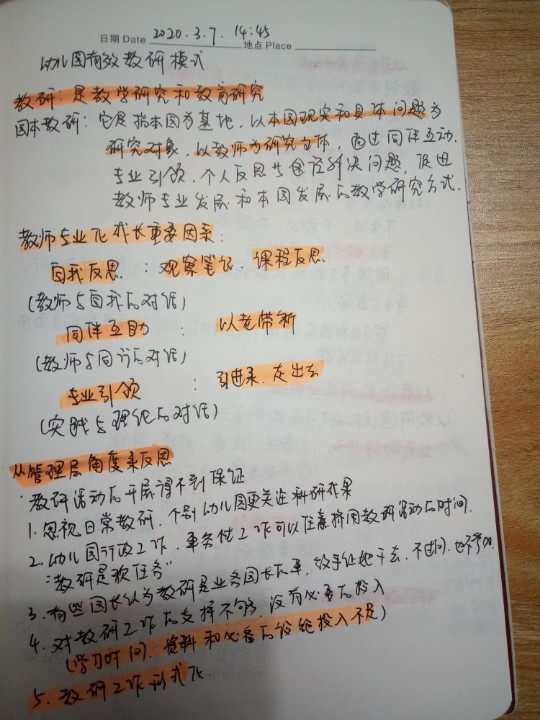 日期 Date 2020.3.7. 14:45
地点 Place
幼儿园有效教研模式
教研：是教学研究和教育研究
园本教研：它是指本园为基地，以本园现实和具体问题为
研究对象，以教师为研究主体，通过同伴互动、
专业引领、个人反思等途径解决问题，促进
教师专业发展和本园发展的教学研究方式．
教师专业化成长重要因素：
自我反思：观察笔记 课程反思
(教师与自我的对话)
同伴互助：以老带新
(教师与同行的对话)
专业引领：引进来、走出去
(实践与理论的对话)
从管理层角度来反思
·教研活动的开展得不到保证
1. 忽视日常教研，个别幼儿园更关注科研成果
2. 幼儿园行政工作，事务性工作可以任意挤困教研活动的时间．
"教研是软任务"
3. 有些园长认为教研是业务园长的事，放手让她干去，不过问，也不参加．
4. 对教研工作的支持不够 没有必要的投入
(学习时间、资料和必要的设施投入不足)
5. 教研工作形式化．